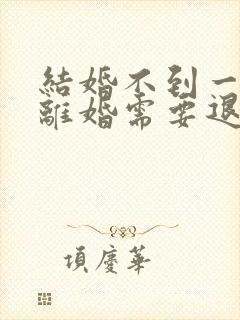 結婚不到一
離婚需要退
項慶華